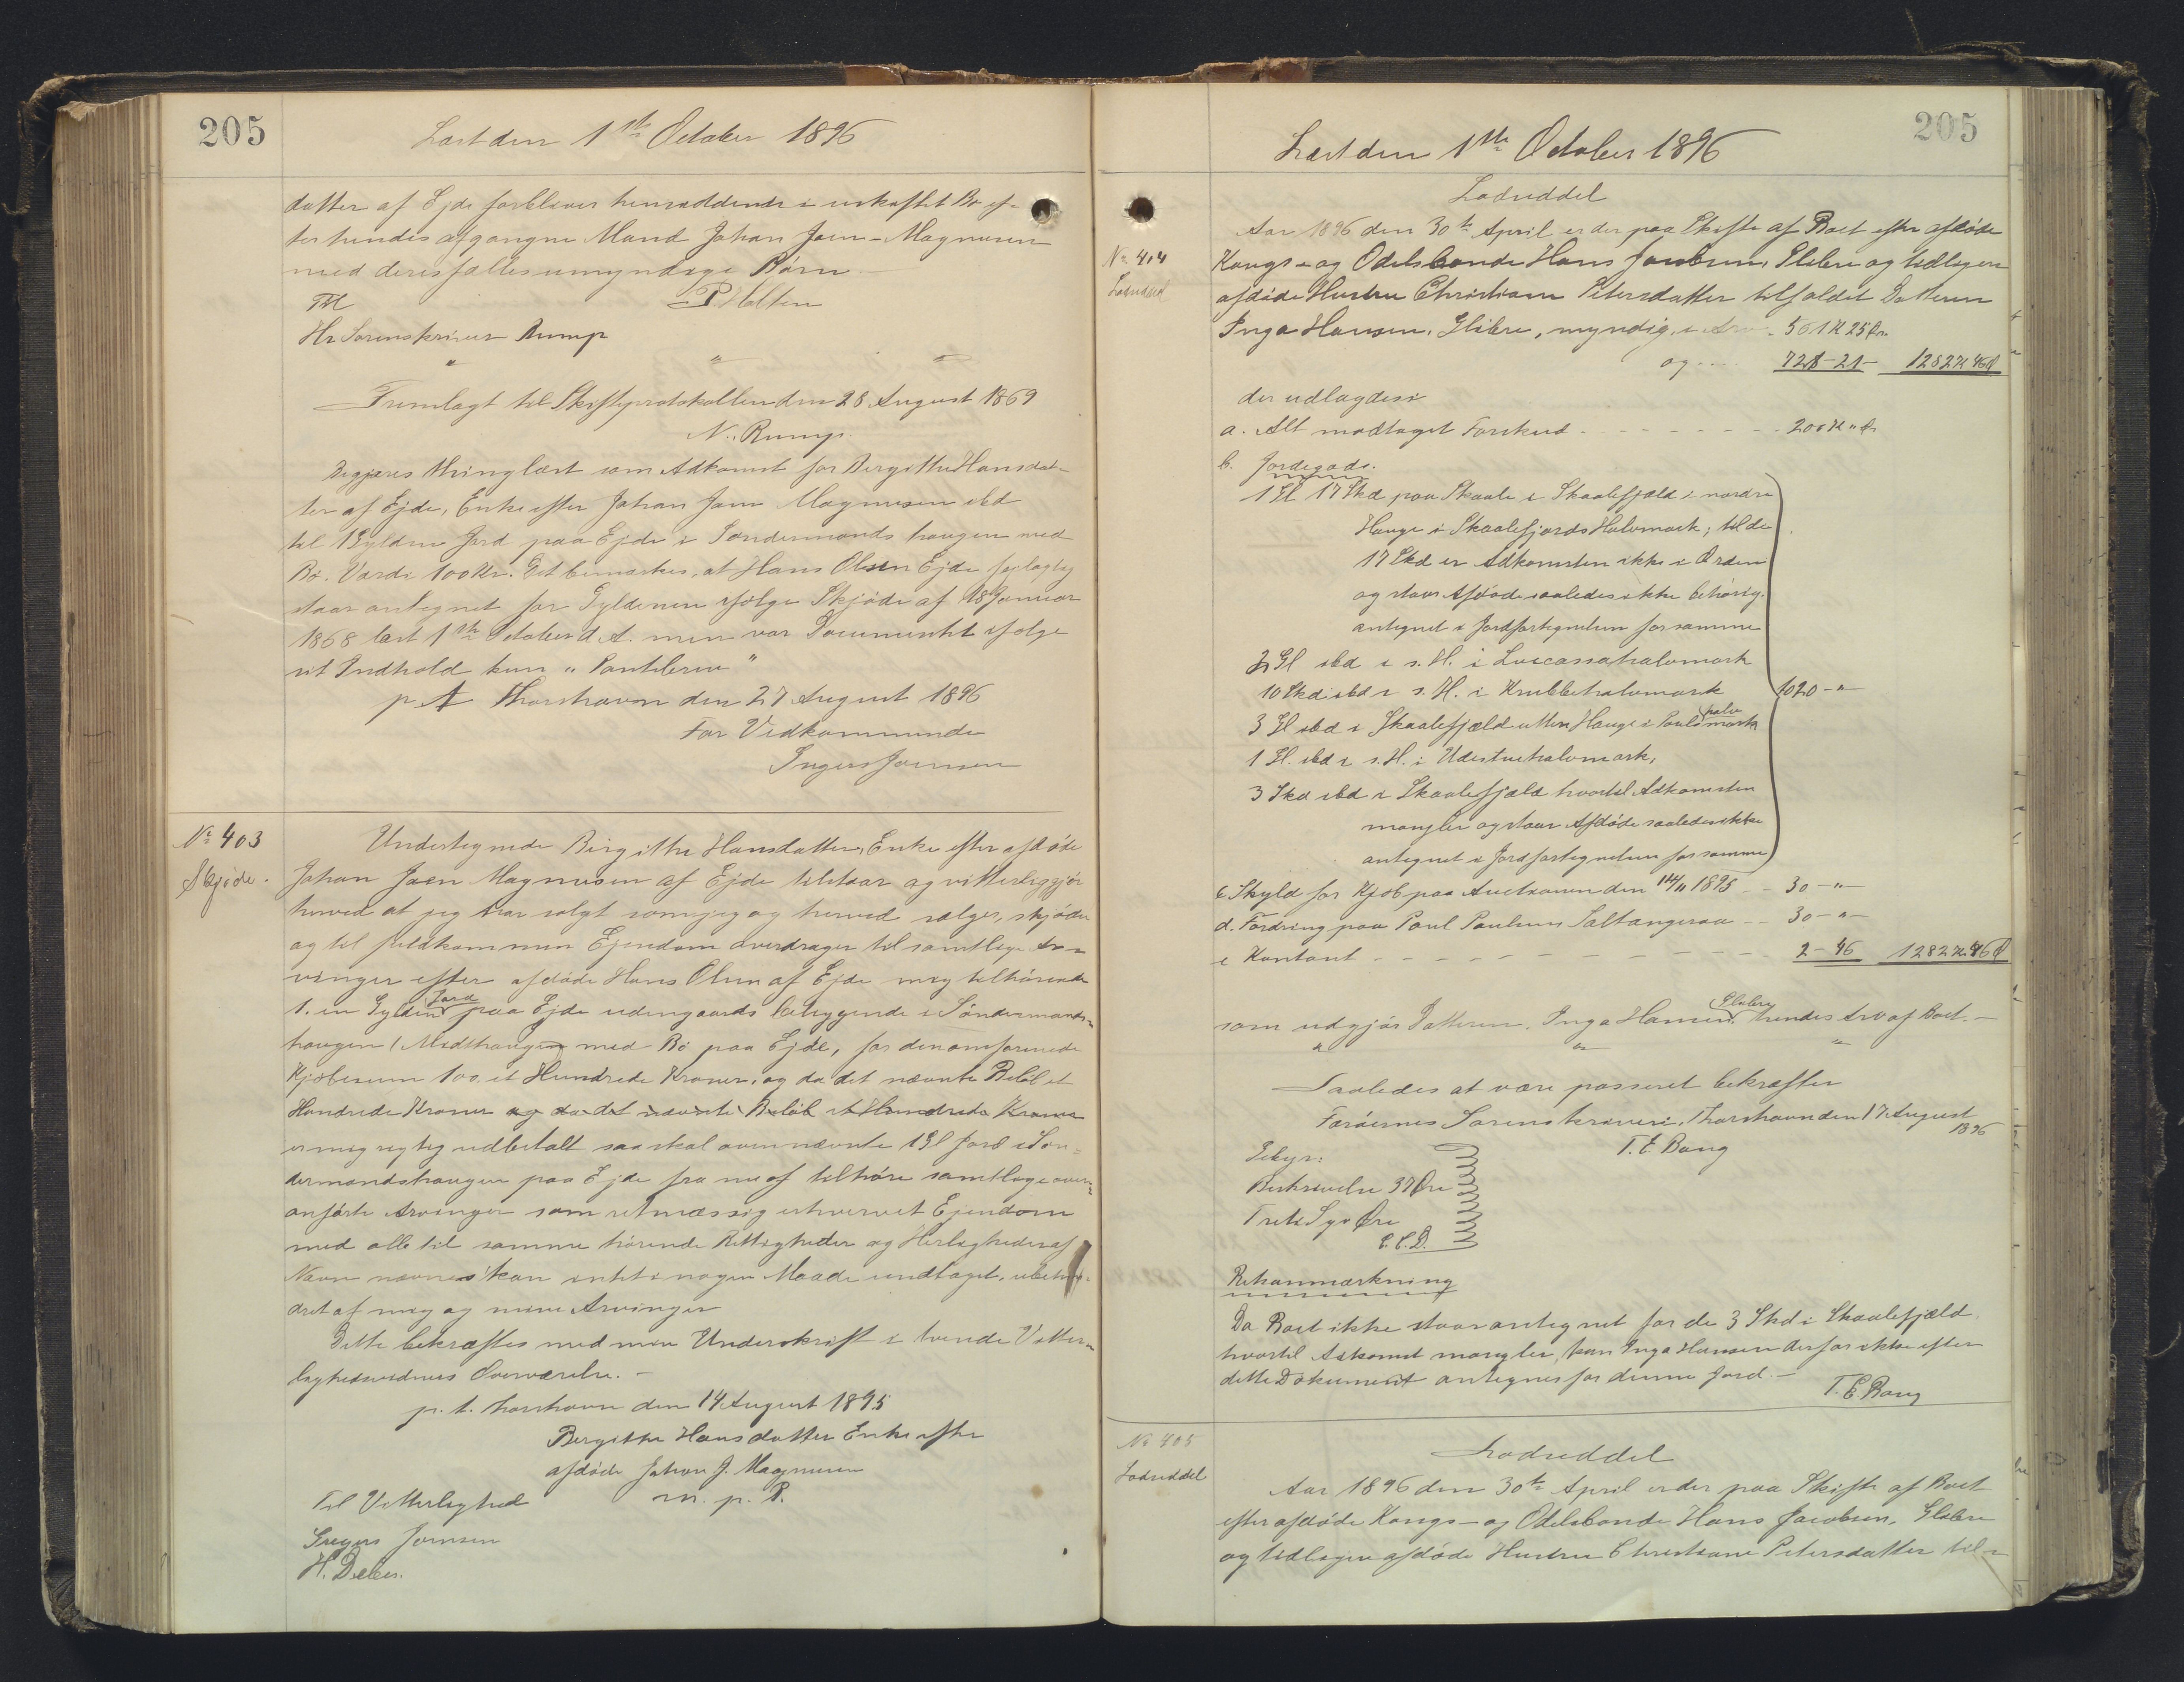 205
Læst den 1ste October 1896
datter af Ejde forbliver hensiddende i uskiftet Bo ef-
ter hendes afgangne Mand Johan Joen-Magnusen
med deres fælles umyndige Børn.
Til P Holten
Hr Sorenskriver Rump
" " "
Fremlagt til Skifteprotokollen den 28 August 1869
N. Rump.
Begjæres thinglæst som Adkomst for Bergithe Hansdat-
ter af Ejde, Enke efter Johan Joen Magnusen ibd
til 1 Gylden Jord paa Ejde i Søndermands haugen med
Bø. Værdi 100 Kr. Det bemærkes, at Hans Olsen Ejde fejlagtig
staar antegnet for Gyldenen ifølge Skjøde af 18 Januar
1868 læst 1ste October d. A. men var Documentet ifølge
sit Indhold kun "Pantebrev"
p. t. Thorshavn den 27 August 1896
For Vedkommende
Joensen
No 403
Skjøde.
Undertegnede Birgithe Hansdatter, Enke efter afdøde
Johan Joen Magnusen af Ejde tilstaar og vitterliggjør
herved at jeg har solgt som jeg og herved sælger, skjøder
og til fuldkommen Ejendom overdrager til samtlige Ar-
vinger efter afdøde Hans Olsen af Ejde mig tilhørende
1. en Gylden Jord paa Ejde udengaards beliggende i Søndermands-
haugen (Midthaugen) med Bø paa Ejde, for den omforenede
Kjøbesum 100, et Hundrede Kroner, og da det nævnte Beløb et
Hundrede Kroner og da det nævnte Beløb et Hundrede Kroner
er mig rigtig udbetalt saa skal ovennævnte 1 Gl Jord i Søn-
dermandshaugen paa Ejde fra nu af tilhøre samtlige oven-
anførte Arvinger som retmæssig erhvervet Ejendom
med alle til samme hørende Rettigheder og Herligheder af
Navn nævnes kan intet i nogen Maade undtaget, ubehin-
dret af mig og mine Arvinger
Dette bekræftes med min Underskrift i tvende Vitter-
lighedsvidners Overværelse.-
p. t. Thorshavn den 14 August 1895
Bergithe Hansdatter Enke efter
afdøde Johan J. Magnusen
m. p. P.
Til Vitterlighed
Joensen
H. Debes.
205
Læst den 1ste October 1896
No 404
Lodseddel
Lodseddel
Aar 1896 den 30te April er der paa Skifte af Boet efter afdøde
Kongs- og Odelsbonde Hans Jacobsen, Glibre og tidligere
afdøde Hustru Christiane Petersdatter tilfaldet Datteren
Inga Hansen, Glibre, myndig, i Arv 561 K 25 Øre
og .... 721-21- 1282 K 46 Ø
der udlagdes i
a. Alt modtaget Forskud - - - - - 200 K " Ø
b. Jordegods.
1 Gl 17 Skd paa Skaale i Skaalefjæld i nordre
Hauge i Skaalefjords Halvmark; til de
17 Skd er Adkomsten ikke i Orden
og staar Afdøde saaledes ikke behørig.
antegnet i Jordfortegnelsen for samme
2 Gl ibd i s. H. i Luscassahalvmark
10 Skd ibd i s. H. i Krubbehalvmark 1020-"
3 Gl ibd i Skaalefjæld uttere Hauge i Pouls halvmark
1 Gl. ibd i s. H. i Udestuehalvmark,
3 Skd ibd i Skaalefjæld hvortil Adkomsten
mangler og staar Afdøde saaledes ikke
antegnet i Jordfortegnelsen for samme
c Skyld for Kjøb paa Auctionen den 14/11 1895 - 30-"-
d. Fordring paa Poul Poulsens Saltangeraa - - 30-"-
e Kontant - - - - - - - 2-46 1282 K 46 Ø
som udgjør Datteren, Inga Hansen Glibre, hendes Arv af Boet.-
" " "
Saaledes at være passeret bekræfter
Færøernes Sorenskriveri, Thorshavn den 17 August
1896
T. E. Bang
Gebyr:
Beskrivelse 37 Øre
Treti Syv Øre
E. E. D.
Retsanmærkning
Da Boet ikke staar antegnet for de 3 Skd i Skaalefjæld
hvortil Adkomst mangler, kan Inga Hansen derfor ikke efter
dette Dokument antegnes for denne Jord.-
T. E. Bang
No 405
Lodseddel
Lodseddel
Aar 1896 den 30te April er der paa Skifte af Boet
efter afdøde Kongs- og Odelsbonde Hans Jacobsen, Glibre
og tidligere afdøde Hustru Christiane Petersdatter til-